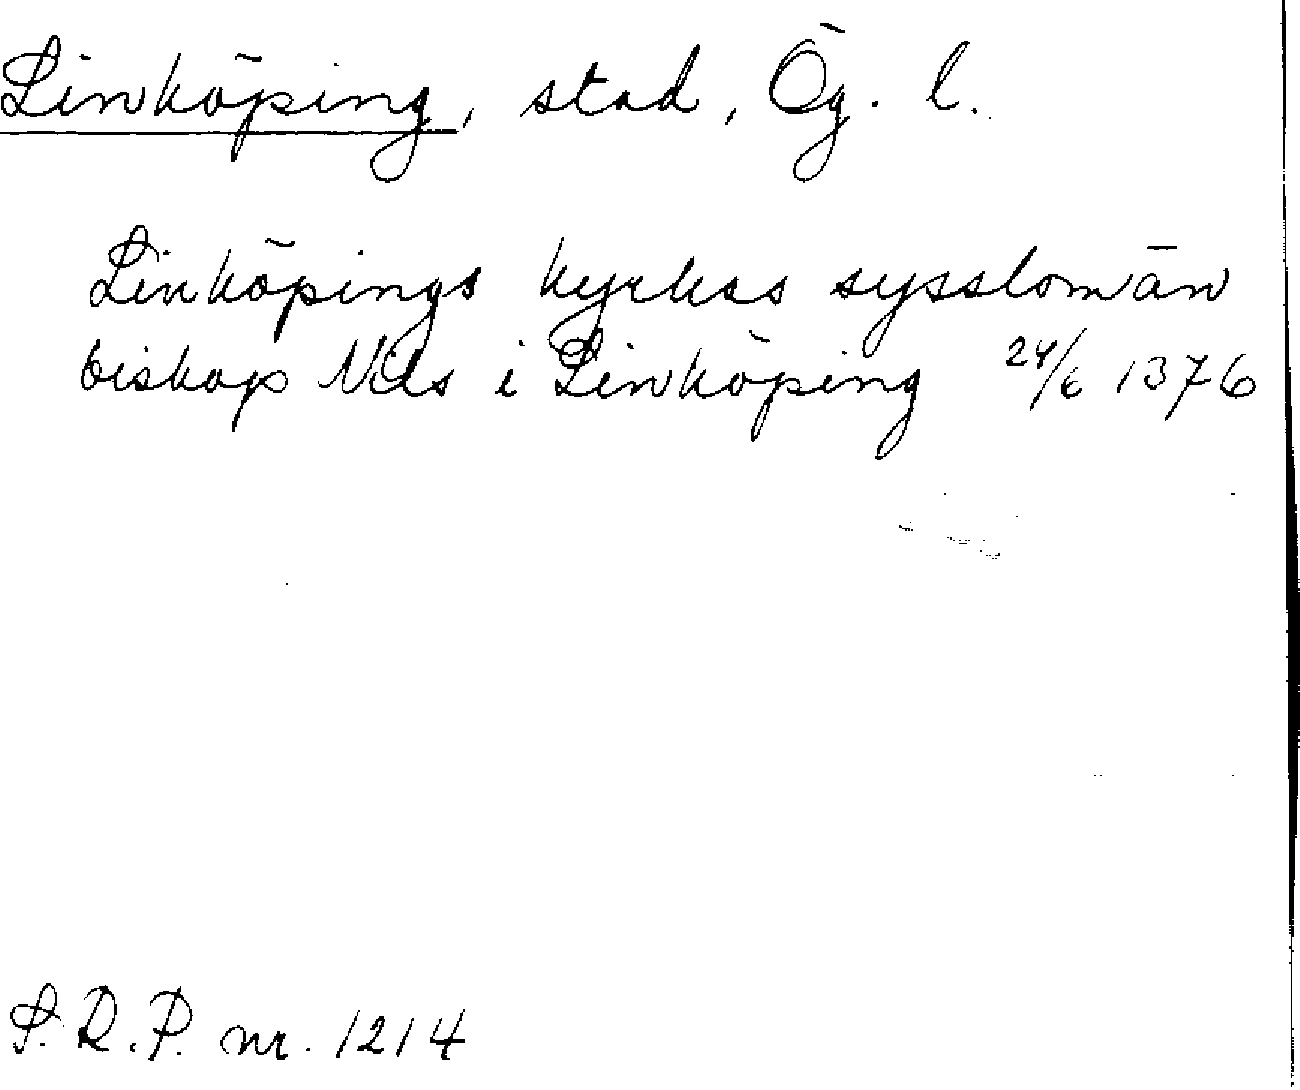 Linköping, stad, Ög. l.
Linköpings kyrkas sysslomän
biskop Nils i Linköping 24/6 1376
S. R. P. nr. 1214